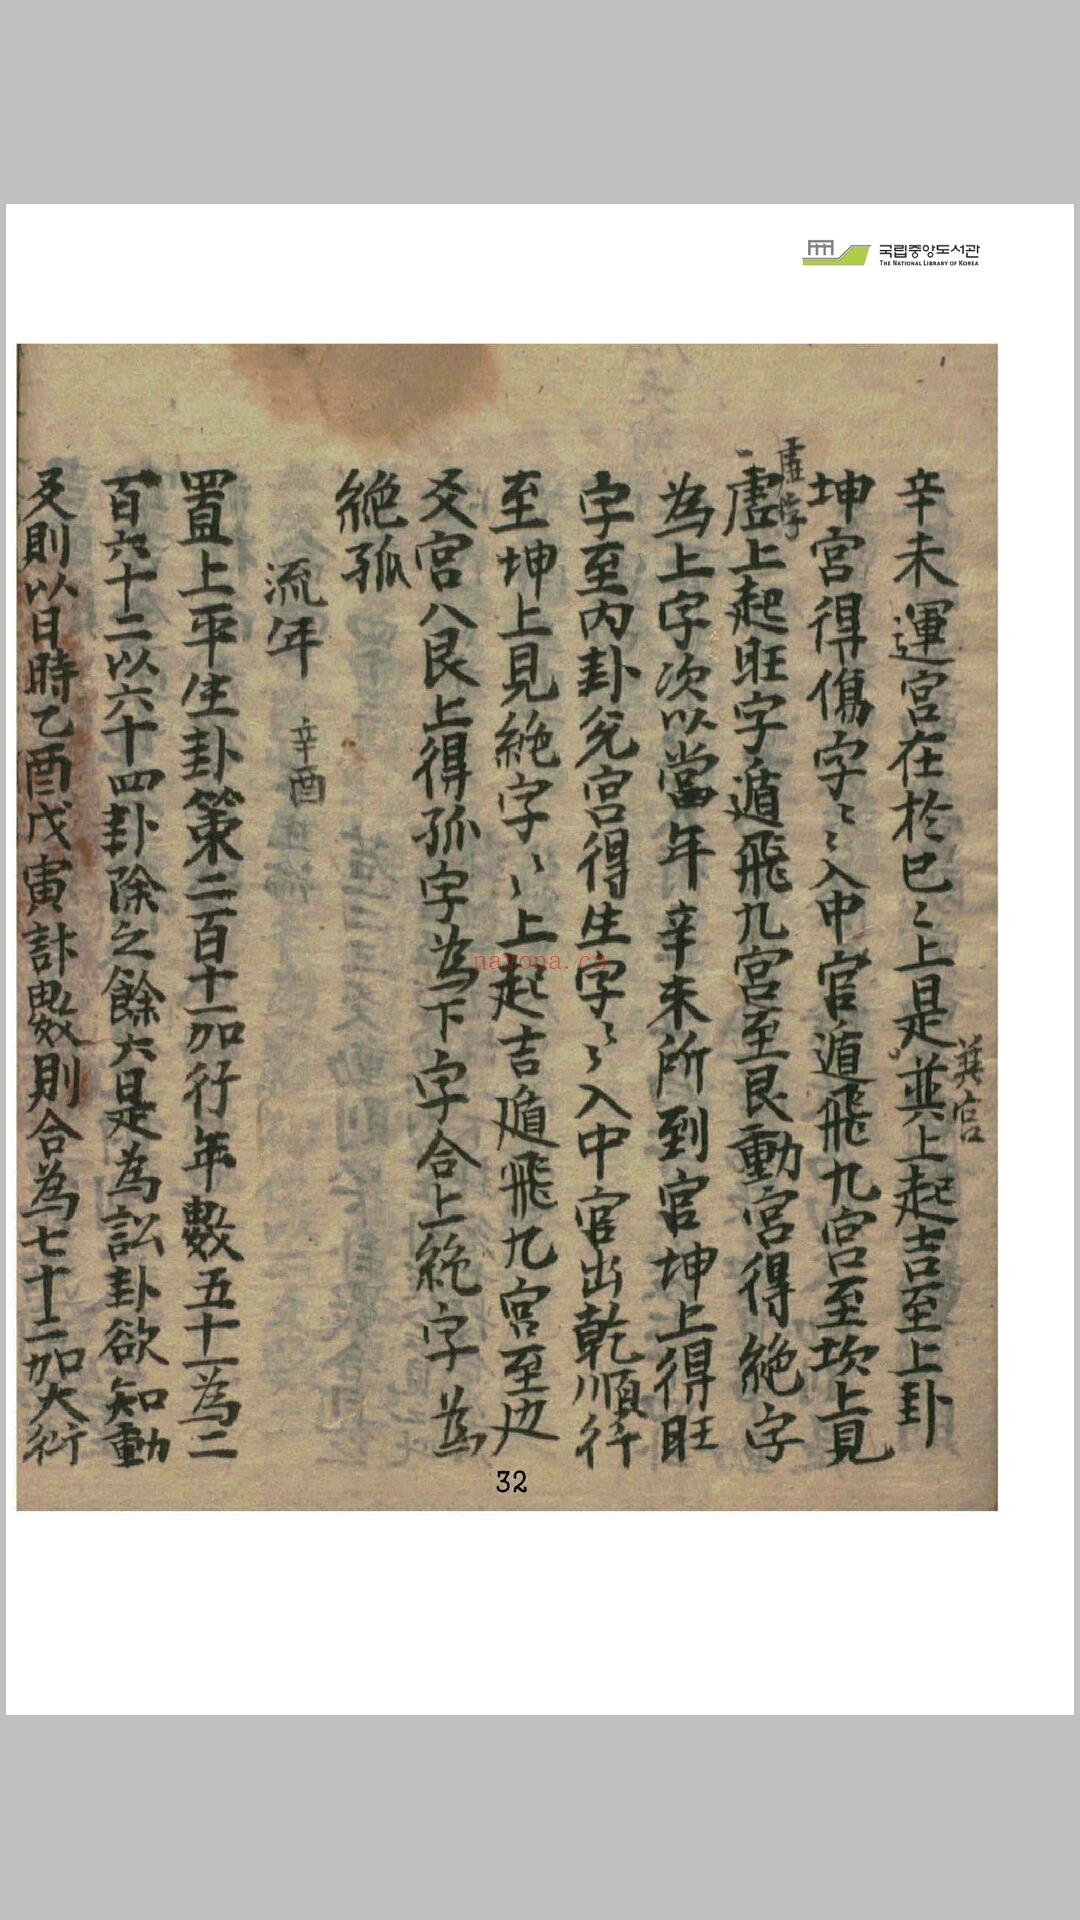 국립중앙도서관
THE NATIONAL LIBRARY OF KOREA
辛未運宮在於巳〻上是巽上起吉至上卦
巽宮
坤宮得傷字〻〻入中宮遁飛九宮至坎上見
虛字
虛上起旺字遁飛九宮至艮動宮得絶字
為上字次以當年辛未所到宮坤上得旺
字至內卦兌宮得生字〻〻入中宮出乾順行
至坤上見絶字〻〻上起吉遁飛九宮至边
爻宮八艮上得孤字為下字合上絶字為
絶孤
流年 辛酉
置上平生卦策二百十一加行年數五十一為二
百六十二以六十四卦除之餘六是為訟卦欲知動
爻則以日時乙酉戊寅計數則合為七十二加大衍
nayona.ca
32